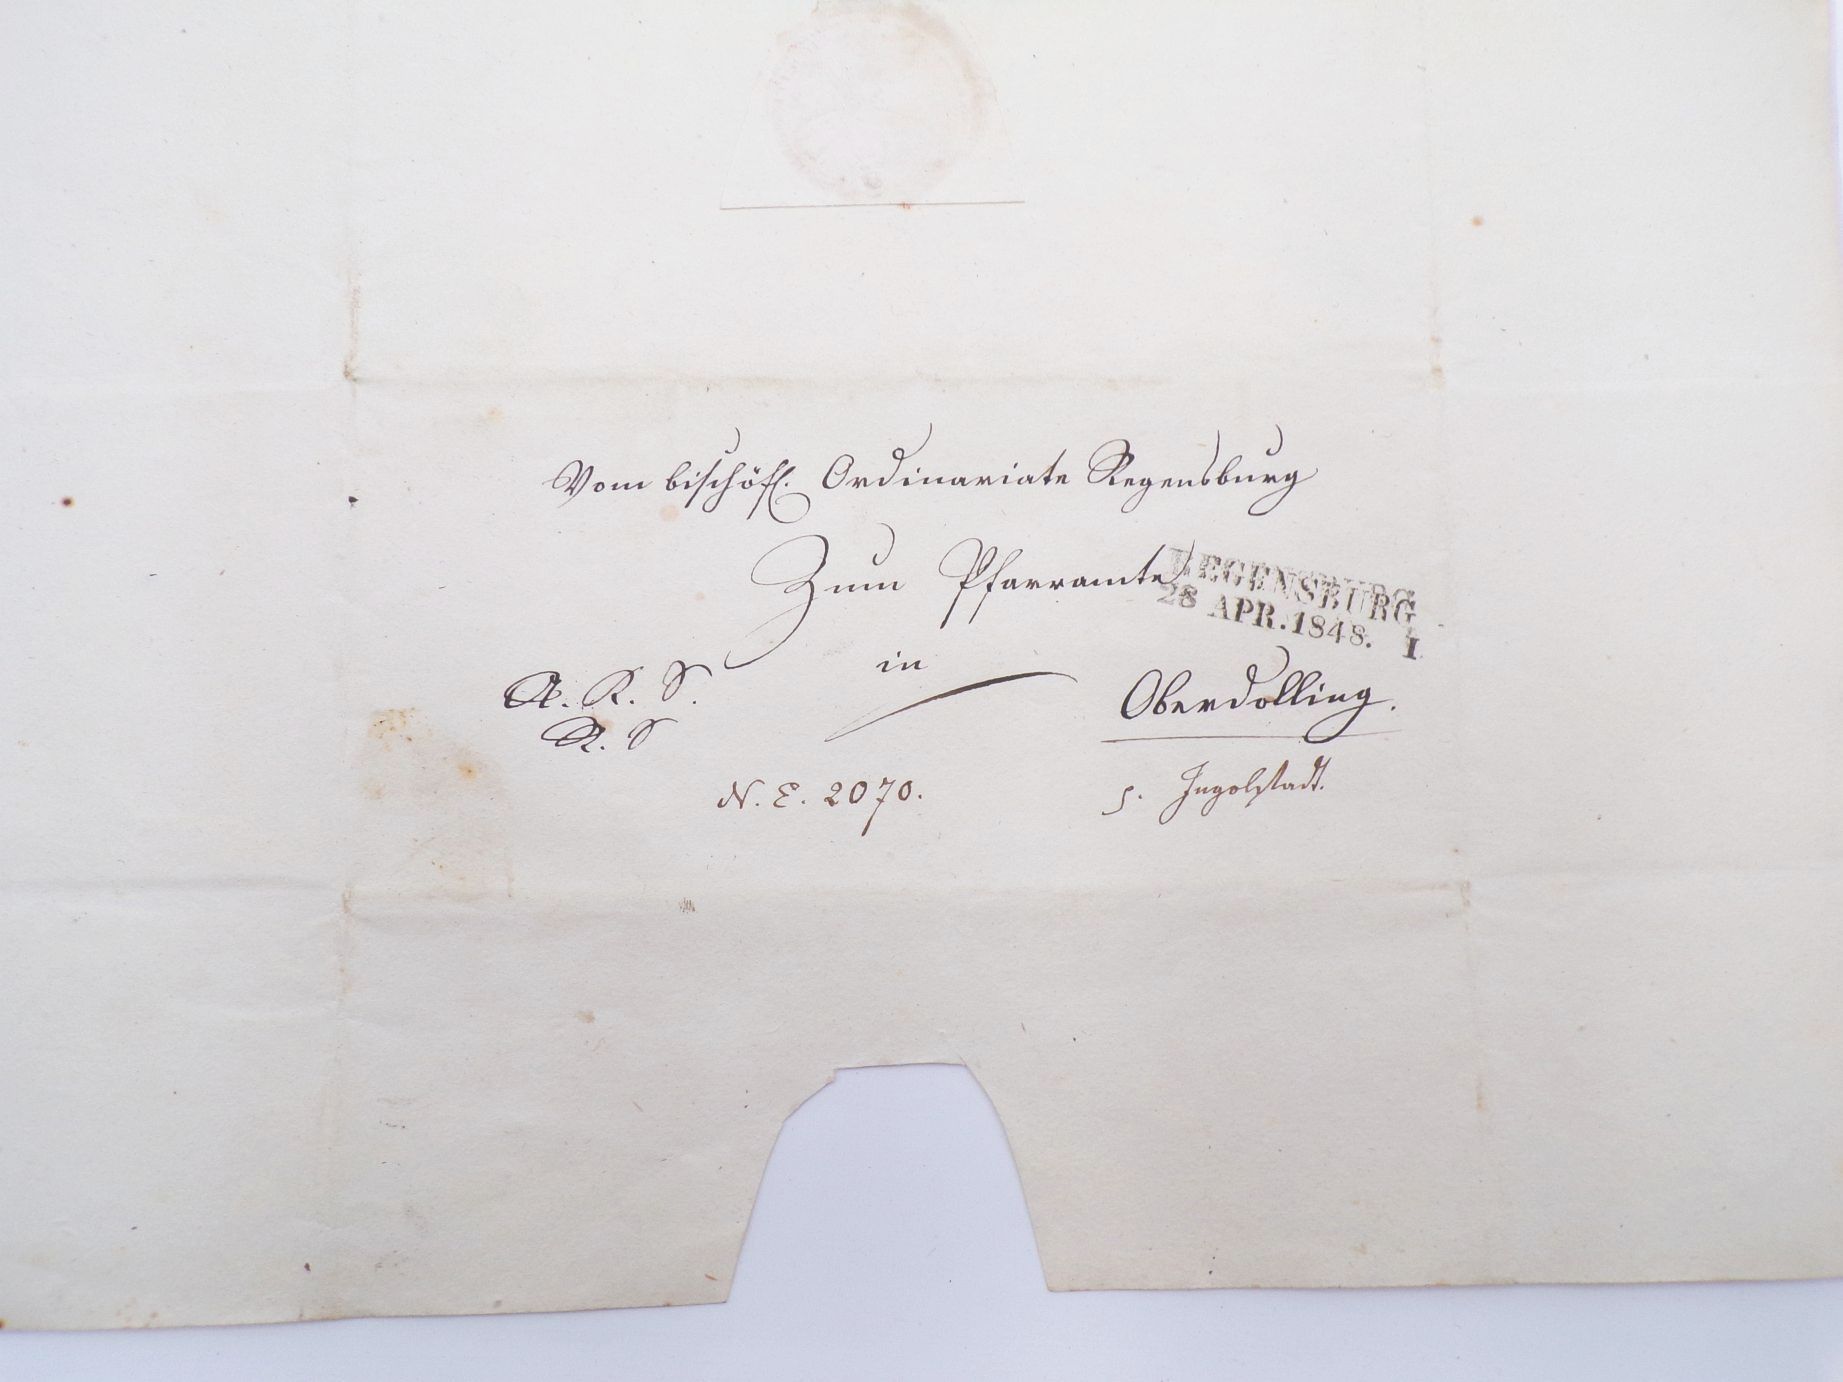 Vom bischöfl. Ordinariate Regensburg
Zum Pfarramte
REGENSBURG
28 APR. 1848. I.
in
Oberdolling.
R. S.
R. S
N. E. 2070.
Ingolstadt.